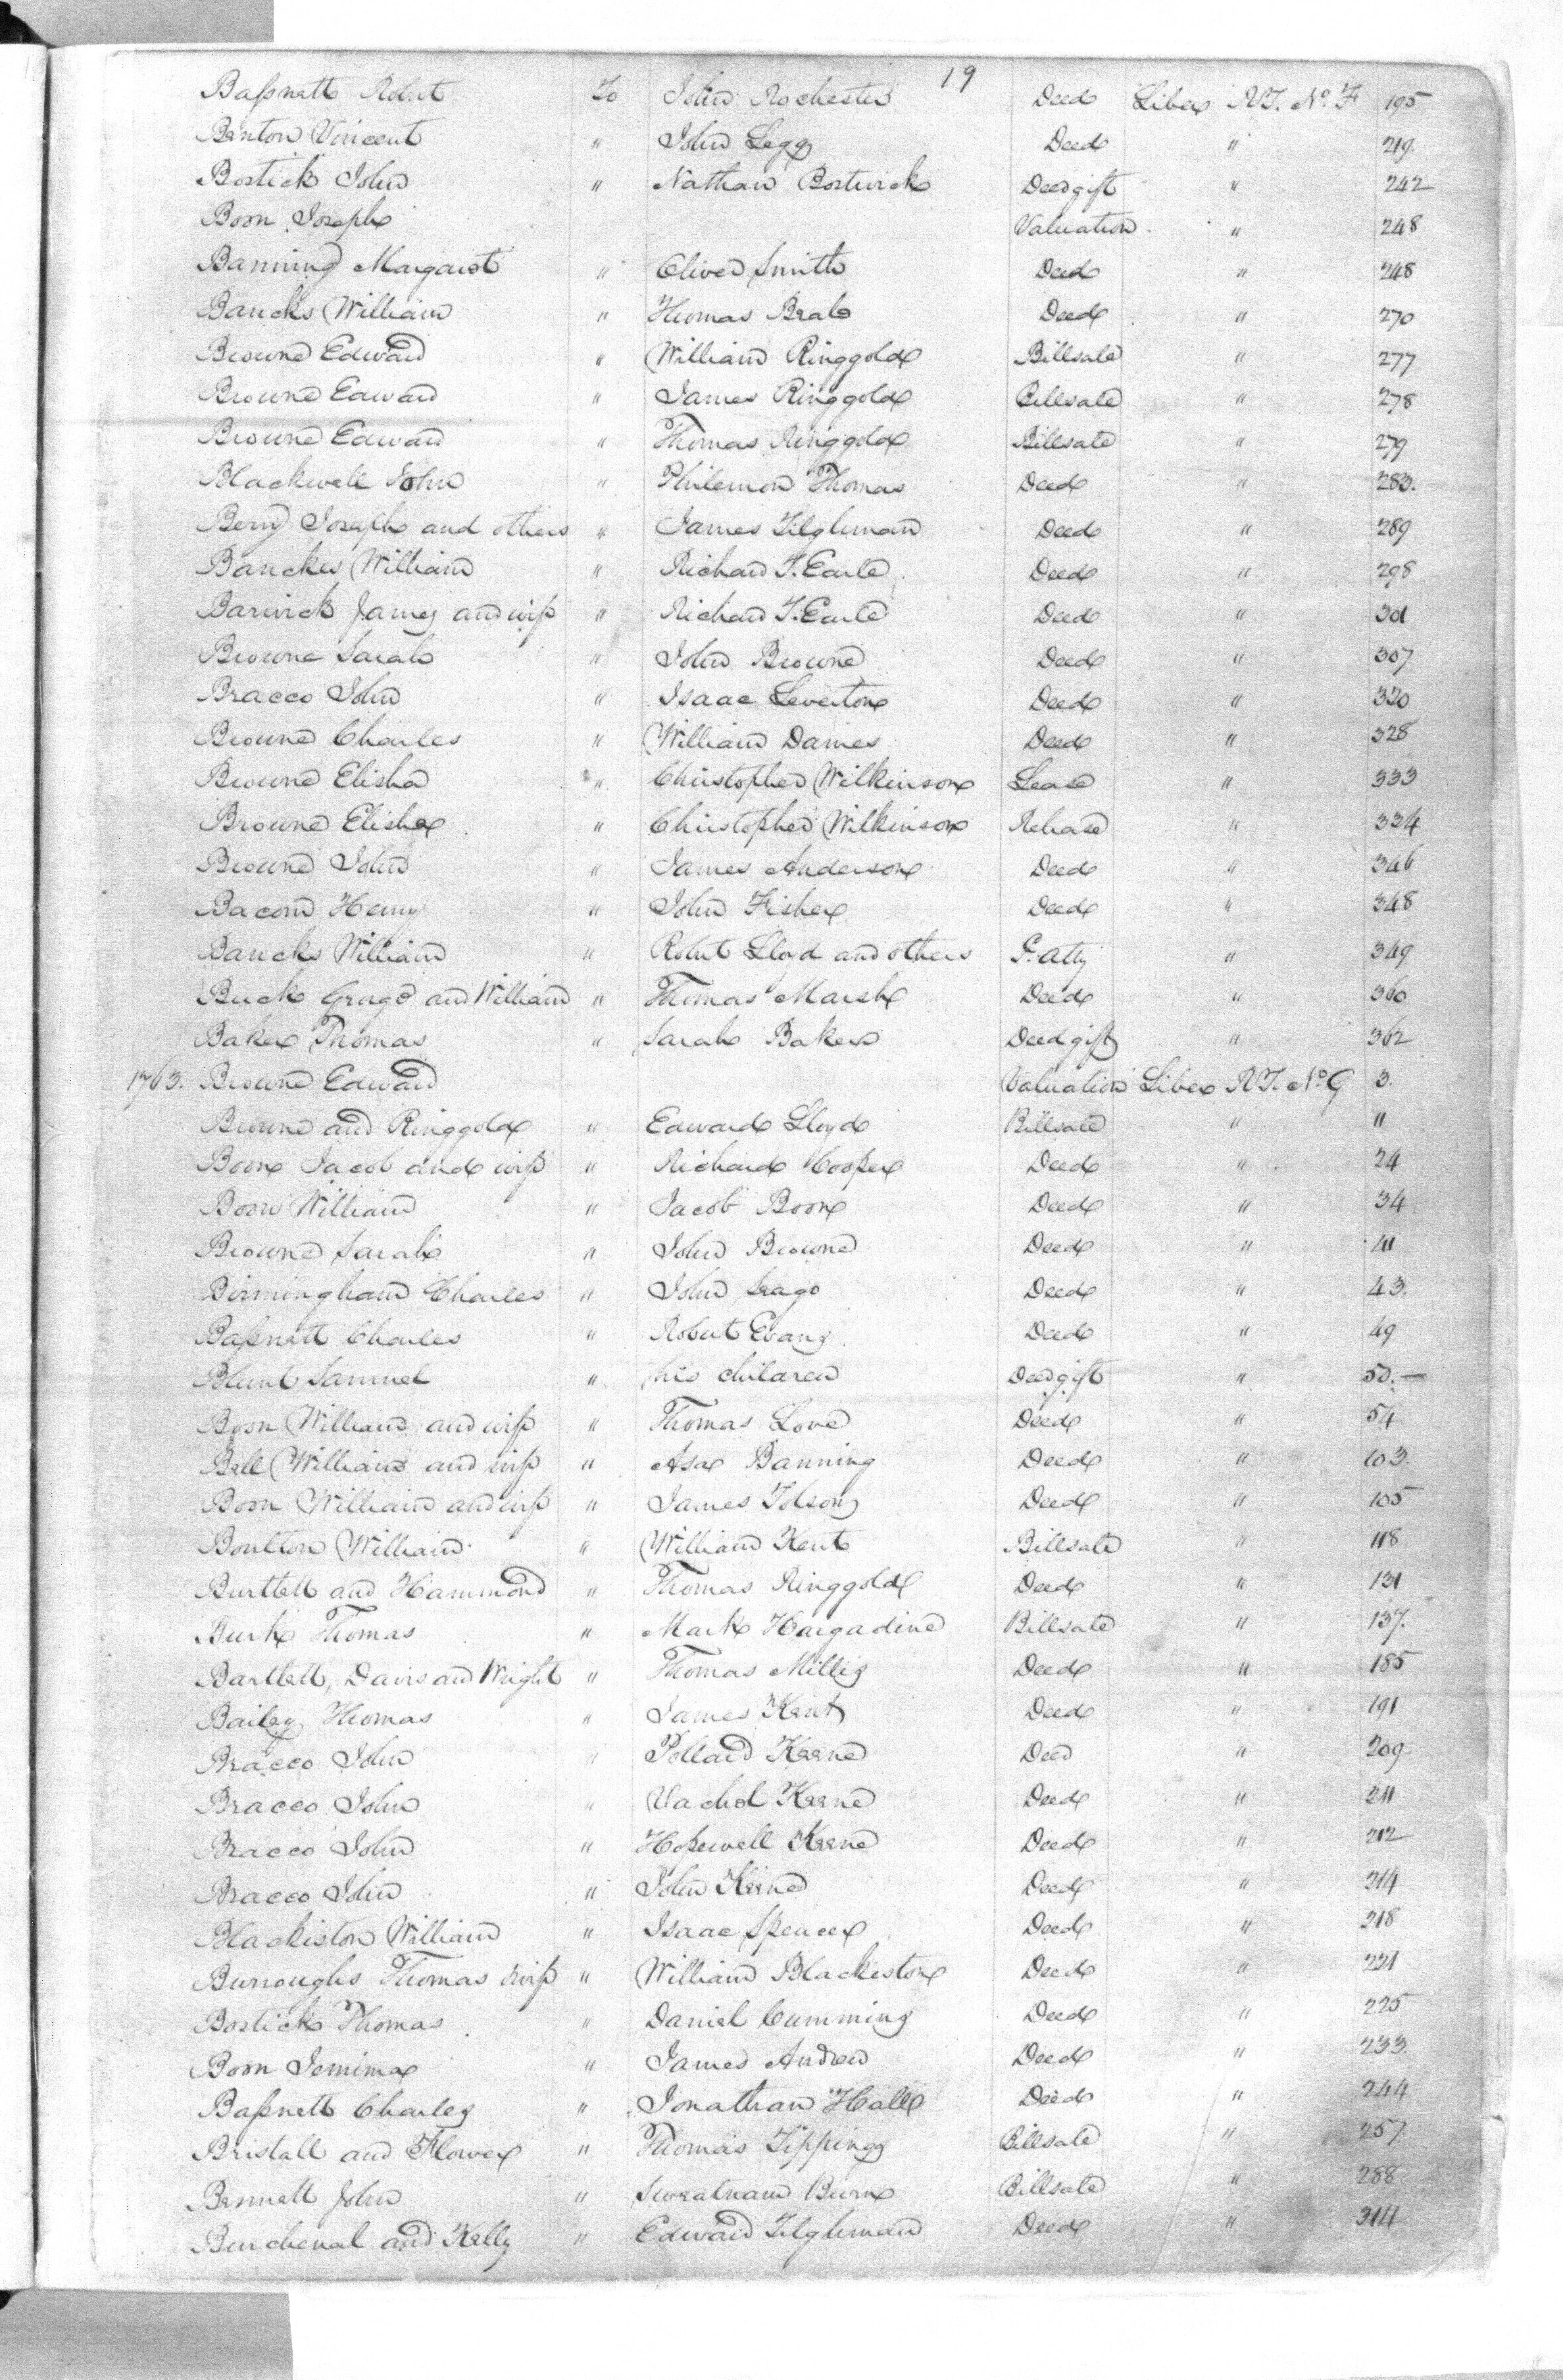 19
Baſsnett Robert To John Rochester Deed Liber R.T. No. F 195
Benton Vincent " John Legg Deed " 219.
Bostick John " Nathan Bostwick Deed gift " 242
Boon Joseph Valuation " 248
Banning Margaret " Oliver Smith Deed " 248
Bancks William " Thomas Beal Deed " 270
Browne Edward " William Ringgold Billsale " 277
Browne Edward " James Ringgold Billsale " 278
Browne Edward " Thomas Ringgold Billsale " 279
Blackwell John " Philemon Thomas Deed " 283.
Berry Joseph and others " James Tilghman Deed " 289
Banckes William " Richard T. Earle Deed " 298
Barwick James and wife " Richard T. Earle Deed " 301
Browne Sarah " John Browne Deed " 307
Bracco John " Isaac Leverton Deed " 320
Browne Charles " William Dames Deed " 328
Browne Elisha " Christopher Wilkinson Lease " 333
Browne Elisha " Christopher Wilkinson Release " 334
Browne John " James Anderson Deed " 346
Bacon Henry " John Fisher Deed " 348
Bancks William " Robert Lloyd and others P. Atty " 349
Buck George and William " Thomas Marsh Deed " 360
Baker Thomas " Sarah Baker Deed gift " 362
1763. Browne Edward Valuation Liber R.T. No. G 3.
Browne and Ringgold " Edward Lloyd Billsale " 11
Boon Jacob and wife " Richard Cooper Deed " 24
Boon William " Jacob Boon Deed " 34
Browne Sarah " John Browne Deed " 41
Birmingham Charles " John Seago Deed " 43.
Baſsnett Charles " Robert Evans Deed " 49
Blunt Samuel " his children Deed gift " 50.—
Boon William and wife " Thomas Love Deed " 54
Bell William and wife " Asa Banning Deed " 103.
Boon William and wife " James Tolson Deed " 105
Boulton William " William Kent Billsale " 118
Burtlett and Hammond " Thomas Ringgold Deed " 131
Burk Thomas " Mark Hargadine Billsale " 137.
Bartlett, Davis and Wright " Thomas Millis Deed " 185
Bailey Thomas " James Kent Deed " 191
Bracco John " Pollard Keene Deed " 209
Bracco John " Vachel Keene Deed " 211
Bracco John " Hopewell Keene Deed " 212
Bracco John " John Keene Deed " 214
Blackiston William " Isaac Spencer Deed " 218
Burroughs Thomas & wife " William Blackeston Deed " 221
Bostick Thomas " Daniel Cumming Deed " 225
Boon Jemima " James Andrew Deed " 233.
Baſsnett Charles " Jonathan Hall Deed " 244
Bristall and Flower " Thomas Tipping Billsale " 257
Bennett John " Sweatnam Burn Billsale " 288
Burchenal and Kelly " Edward Tilghman Deed " 314